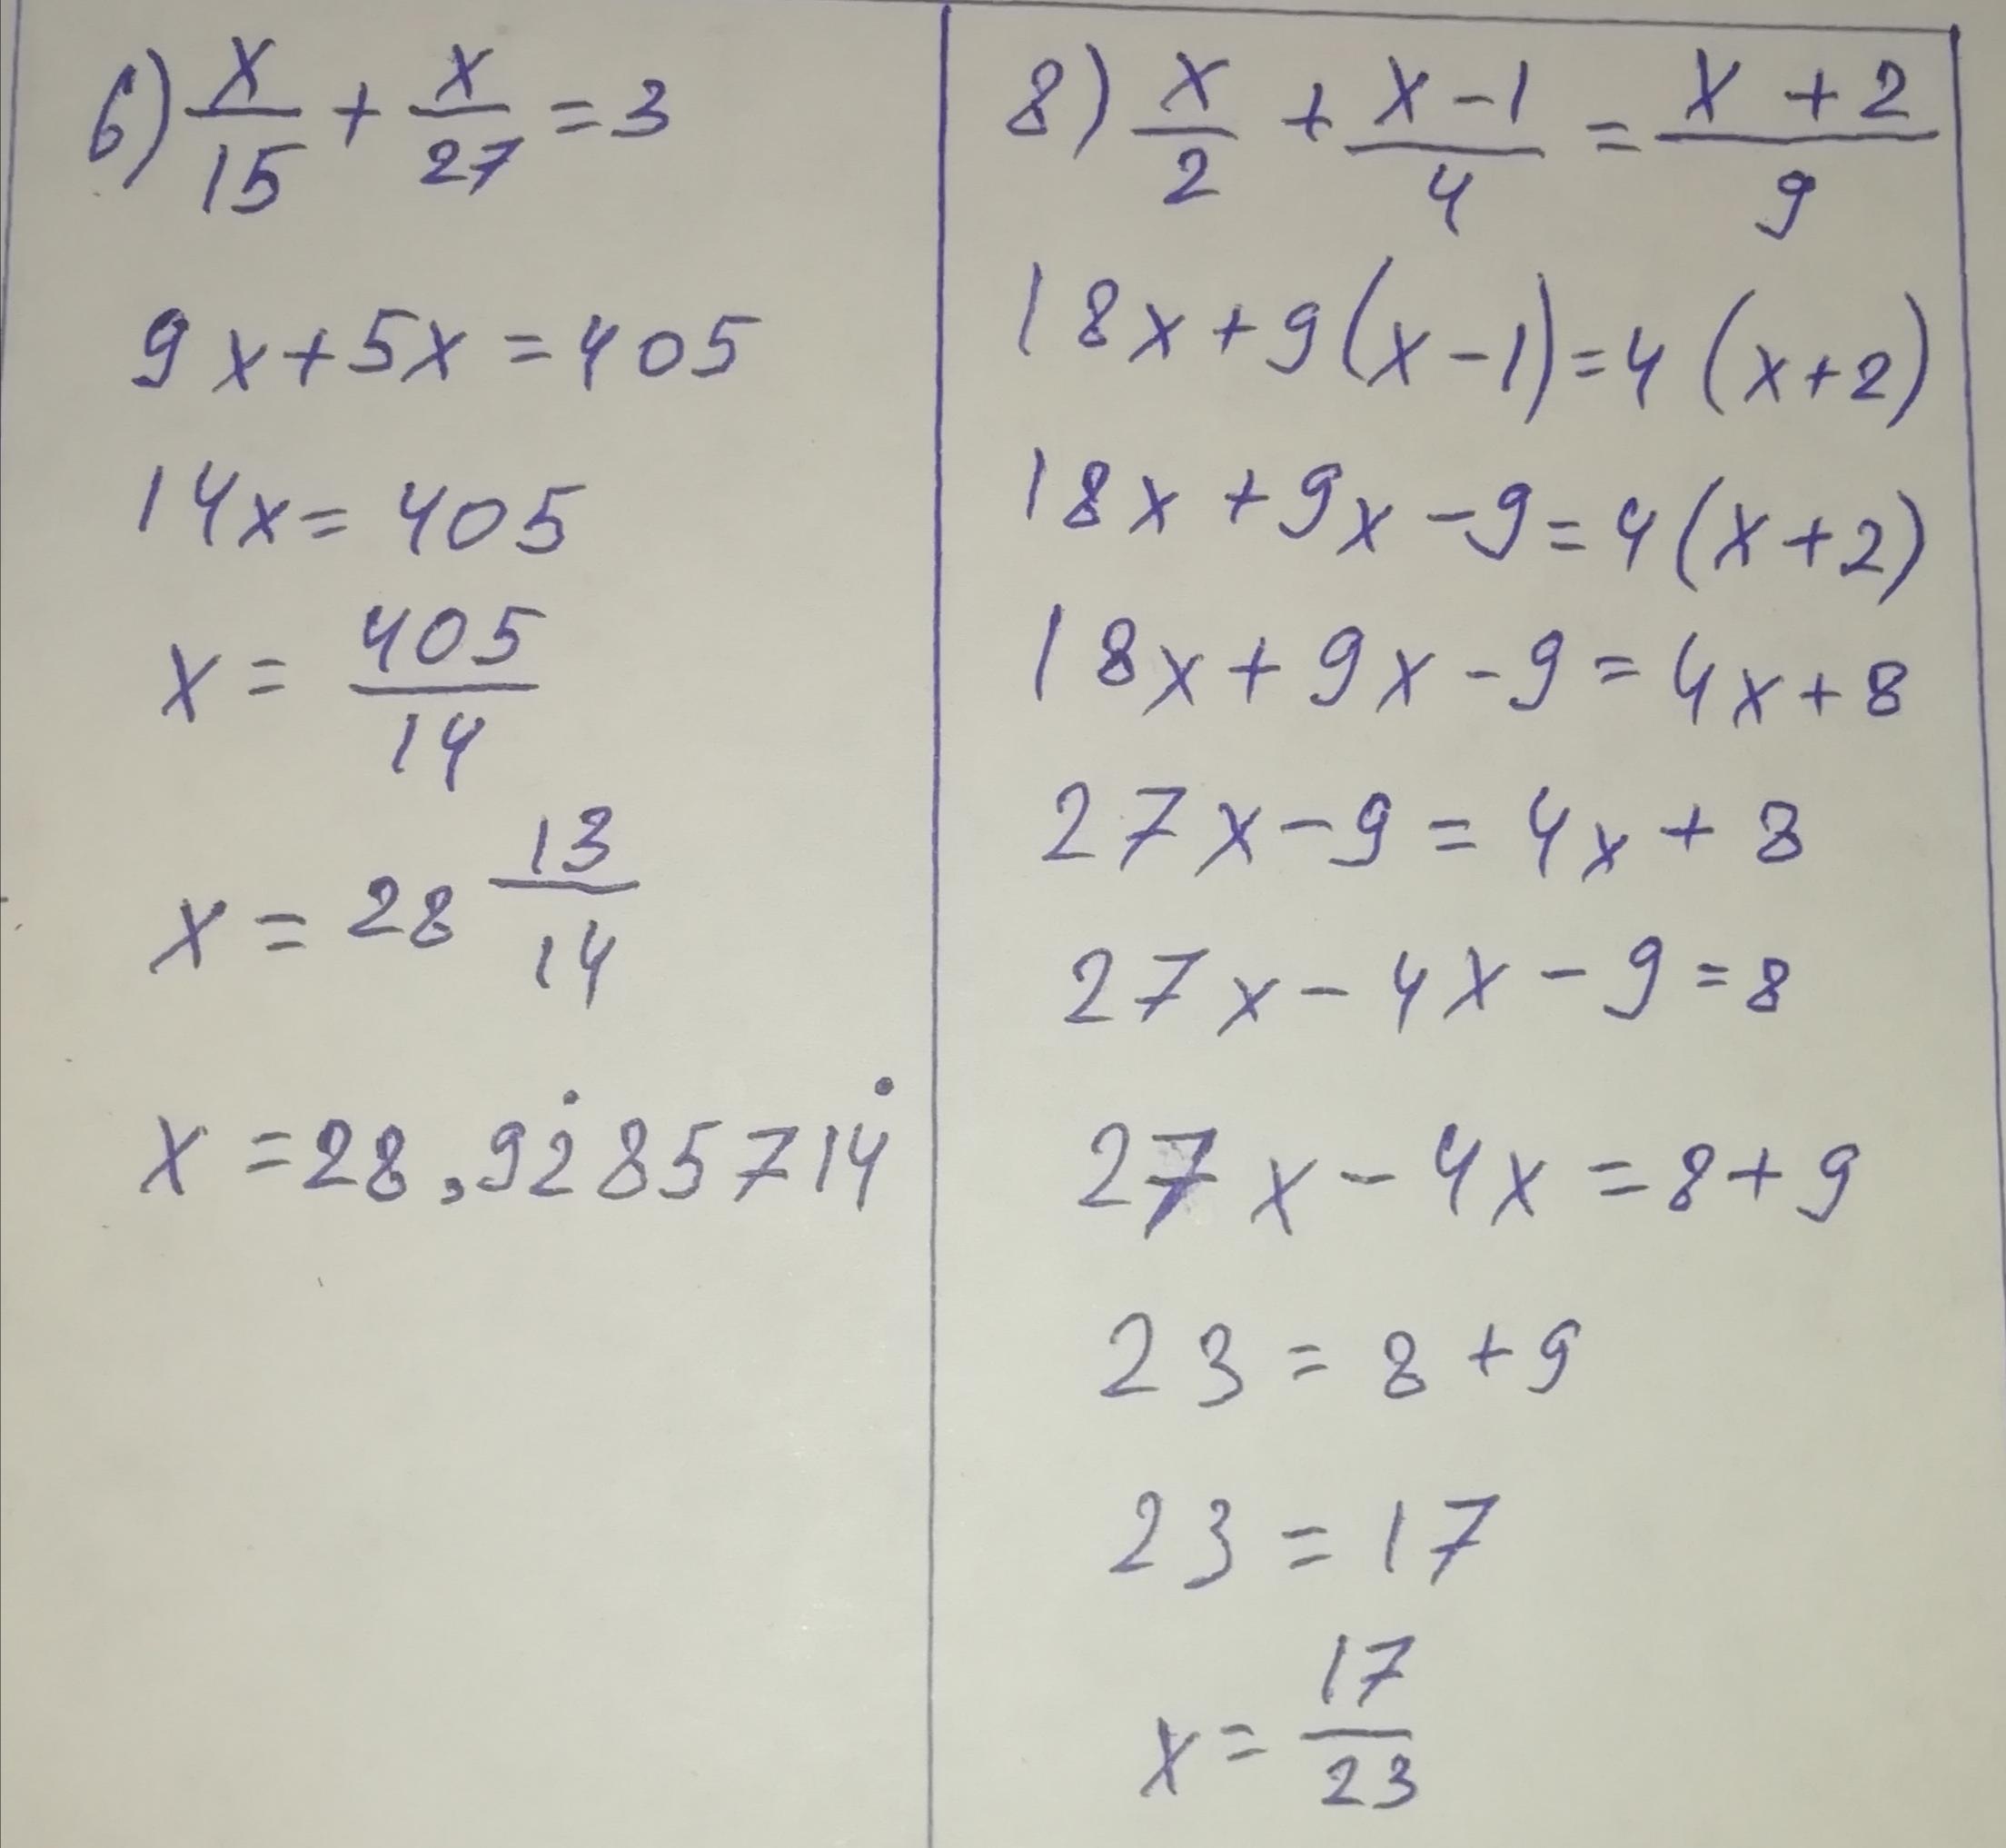 6) x/15 + x/27 = 3
9x + 5x = 405
14x = 405
x = 405/14
x = 28 13/14
x = 28,92̇85714̇
8) x/2 + x-1/4 = x+2/9
18x + 9(x-1) = 4(x+2)
18x + 9x - 9 = 4(x+2)
18x + 9x - 9 = 4x + 8
27x - 9 = 4x + 8
27x - 4x - 9 = 8
27x - 4x = 8 + 9
23 = 8 + 9
23 = 17
x = 17/23